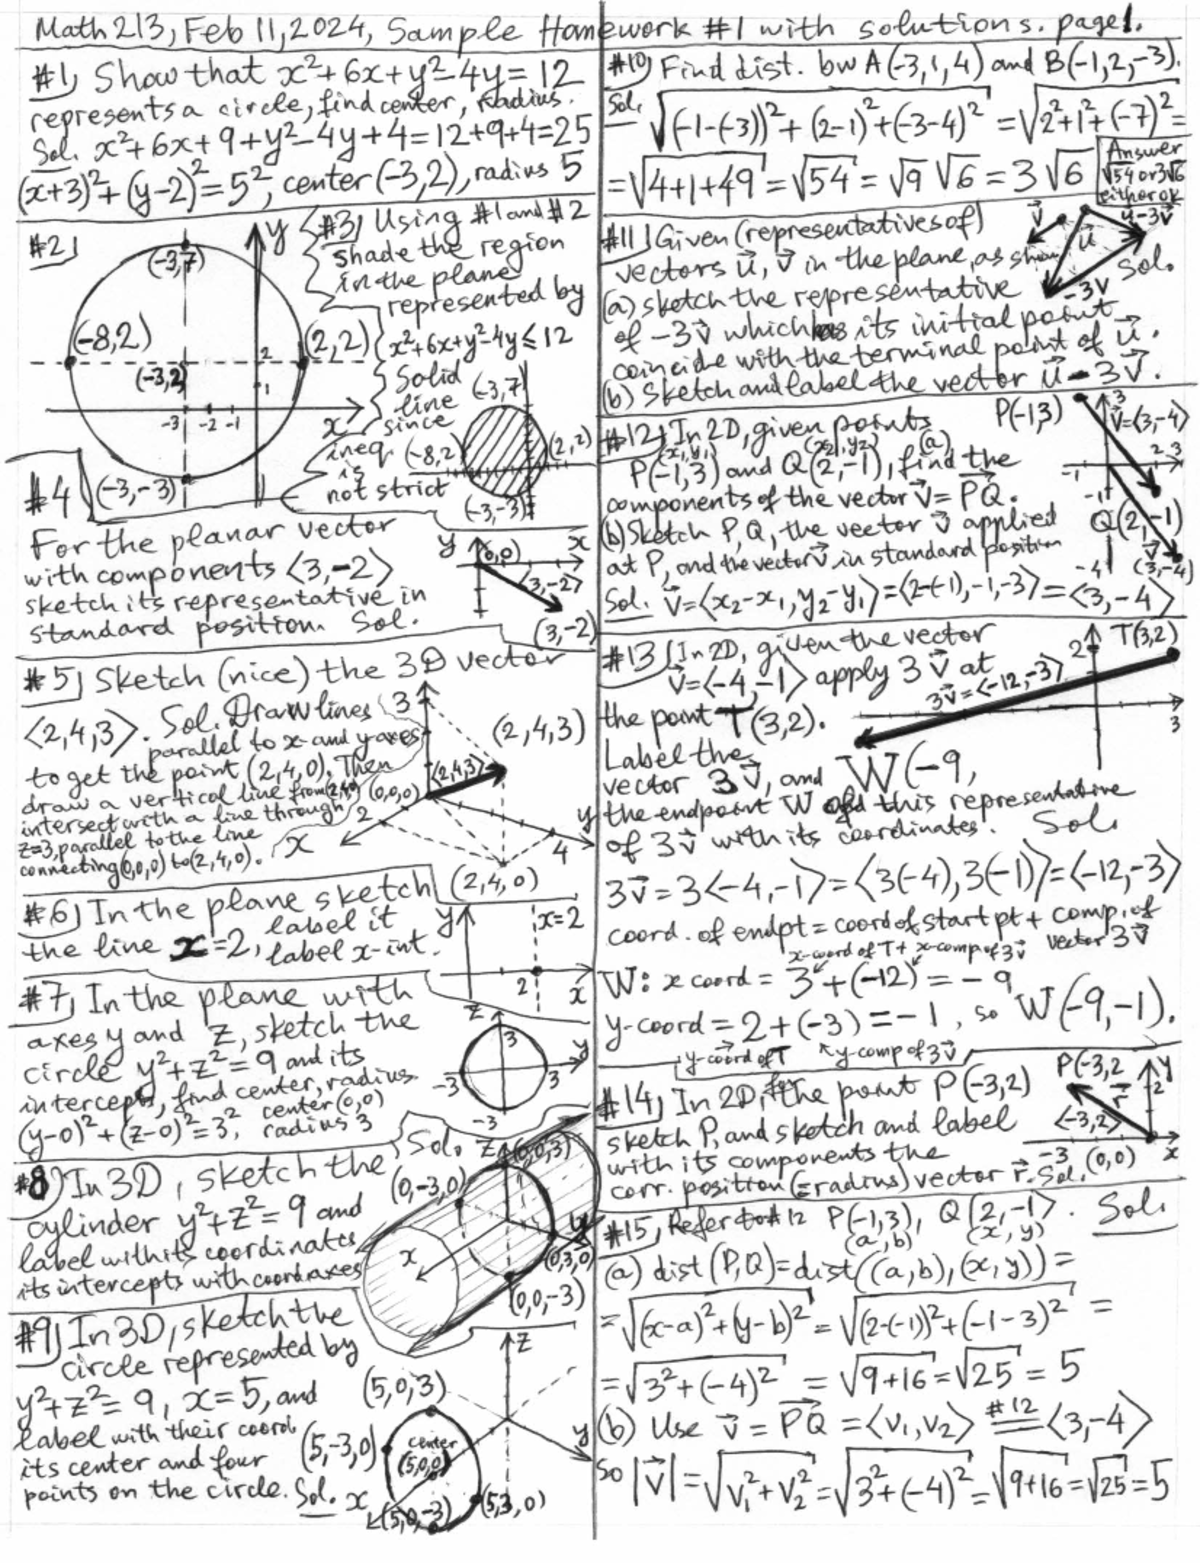 Math 213, Feb 11, 2024, Sample Homework #1 with solutions. page 1.
#1) Show that x²+6x+y²-4y=12
represents a circle, find center, radius.
Sol. x²+6x+9+y²-4y+4=12+9+4=25
(x+3)²+(y-2)²=5², center (-3,2), radius 5
#2)
y
(-3,7)
(-8,2)
(2,2)
(-3,2)
2
1
-3 -2 -1
x
(-3,-3)
#3) Using #1 and #2
shade the region
in the plane
represented by
x²+6x+y²-4y≤12
Solid
line
since
ineq.
is
not strict
(-3,7)
(-8,2)
(2,2)
(-3,-3)
#4
For the planar vector
with components ⟨3,-2⟩
sketch its representative in
standard position. Sol.
y
(0,0)
x
⟨3,-2⟩
(3,-2)
#5) Sketch (nice) the 3D vector
⟨2,4,3⟩. Sol. Draw lines
parallel to x- and y-axes
to get the point (2,4,0). Then
draw a vertical line from (2,4,0)
intersect with a line through
z=3, parallel to the line
connecting (0,0,0) to (2,4,0).
3
(2,4,3)
⟨2,4,3⟩
(0,0,0)
2
x
y
4
(2,4,0)
#6) In the plane sketch
the line x=2, label it
label x-int.
y
x=2
2
x
#7) In the plane with
axes y and z, sketch the
circle y²+z²=9 and its
intercepts, find center, radius.
(y-0)²+(z-0)²=3², center (0,0)
radius 3
z
3
y
-3
3
-3
Sol.
#8) In 3D, sketch the
cylinder y²+z²=9 and
label with its coordinates
its intercepts with coord axes
z
(0,0,3)
(0,-3,0)
x
y
(0,3,0)
(0,0,-3)
#9) In 3D, sketch the
circle represented by
y²+z²=9, x=5, and
label with their coord
its center and four
points on the circle. Sol.
z
(5,0,3)
(5,-3,0)
center
(5,0,0)
y
x
(5,0,-3)
(5,3,0)
#10) Find dist. bw A(-3,1,4) and B(-1,2,-3).
Sol. √(-1-(-3))²+(2-1)²+(-3-4)² = √2²+1²+(-7)² =
=√4+1+49 = √54 = √9 √6 = 3√6
Answer
√54 or 3√6
either ok
#11) Given (representatives of)
vectors u⃗, v⃗ in the plane, as shown
(a) sketch the representative
of -3v⃗ which has its initial point
coincide with the terminal point of u⃗.
(b) Sketch and label the vector u⃗-3v⃗.
v⃗
u⃗
u-3v⃗
Sol.
-3v
#12) In 2D, given points
(x₁,y₁) (x₂,y₂) (a)
P(-1,3) and Q(2,-1), find the
components of the vector v⃗=PQ⃗.
(b) Sketch P, Q, the vector v⃗ applied
at P, and the vector v⃗ in standard position
Sol. v⃗=⟨x₂-x₁, y₂-y₁⟩=⟨2-(-1),-1,-3⟩=⟨3,-4⟩
P(-1,3)
3
v⃗=⟨3,-4⟩
2 3
-1
-1
Q(2,-1)
v⃗
-4
(3,-4)
#13) In 2D, given the vector
v⃗=⟨-4,-1⟩ apply 3v⃗ at
the point T(3,2).
Label the
vector 3v⃗, and
the endpoint W of this representative
of 3v⃗ with its coordinates. Sol.
2
T(3,2)
3v⃗=⟨-12,-3⟩
3
W(-9,
3v⃗=3⟨-4,-1⟩=⟨3(-4),3(-1)⟩=⟨-12,-3⟩
coord. of endpt = coord of start pt + comp. of
vector 3v⃗
x-coord of T + x-comp of 3v⃗
W: x coord = 3+(-12) = -9
y-coord = 2+(-3) = -1, so W(-9,-1).
y-coord of T y-comp of 3v⃗
#14) In 2D, for the point P(-3,2)
sketch P, and sketch and label
with its components the
corr. position (=radius) vector r⃗. Sol.
P(-3,2
y
2
r⃗
⟨-3,2⟩
-3
(0,0)
x
#15) Refer to #12 P(-1,3), Q(2,-1). Sol.
(a,b) (x,y)
(a) dist(P,Q)=dist((a,b),(x,y))=
=√(x-a)²+(y-b)² = √(2-(-1))²+(-1-3)² =
=√3²+(-4)² = √9+16 = √25 = 5
(b) Use v⃗ = PQ⃗ = ⟨v₁,v₂⟩ #12= ⟨3,-4⟩
so |v⃗|=√v₁²+v₂²=√3²+(-4)²=√9+16=√25=5